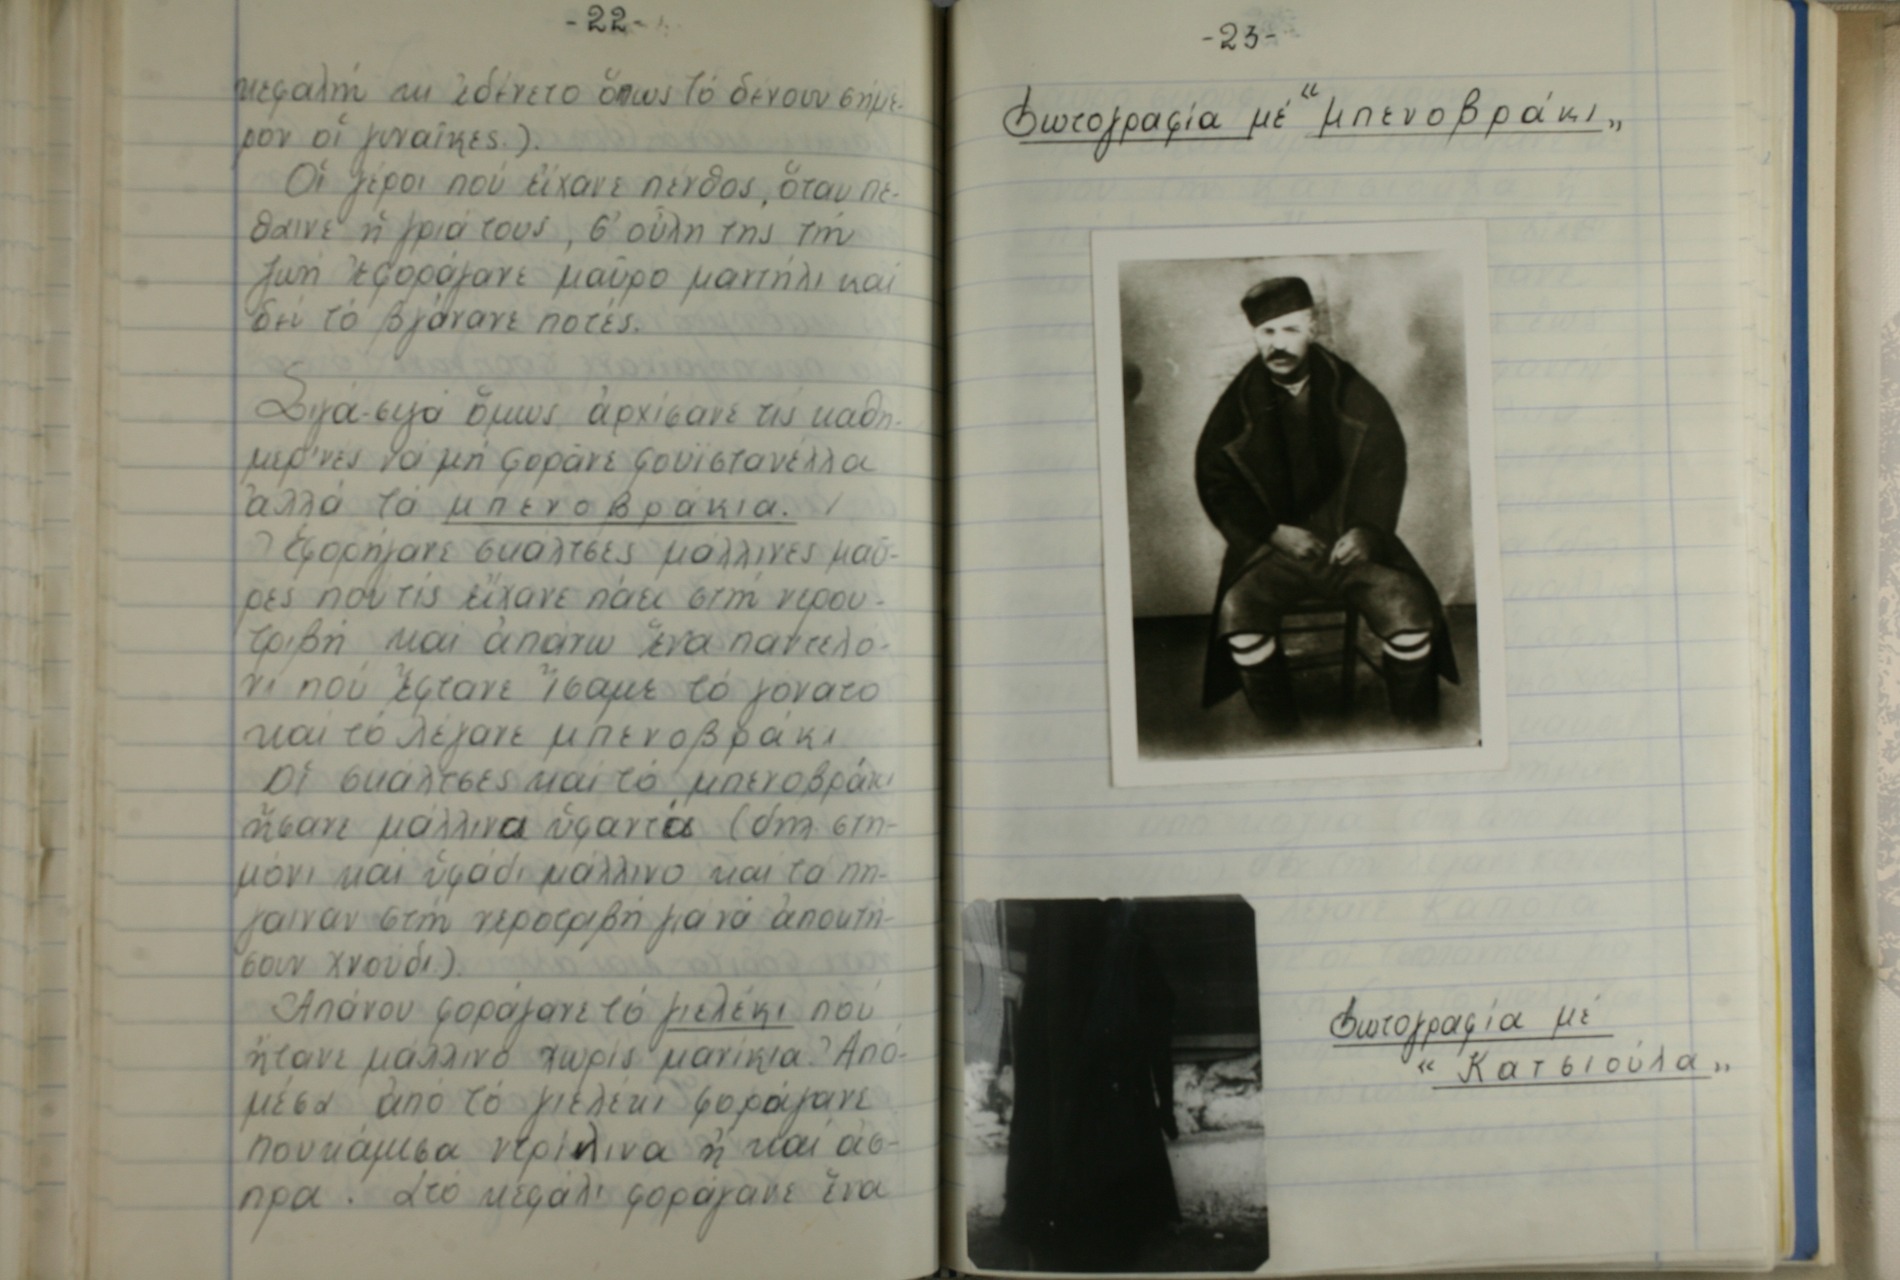 -22-
κεφαλή κι ἐδένετο ὅπως τό δένουν σήμε-
ρον οἵ γυναῖκες.).
Οἵ γέροι πού εἴχανε πένθος, ὅταν πε-
θαινε ἥ γριά τους, σ' οὔλη της τήν
ζωή ἐφοράγανε μαῦρο μαντήλι καί
δέν τό βγάνανε ποτές.
Σιγά-σιγά ὅμως ἀρχίσανε τίς καθη-
μερινές νά μή φορᾶνε φουϊστανέλλα
ἀλλά τά μπενοβράκια.
Ἐφορήγανε σκάλτσες μάλλινες μαῦ-
ρες πού τίς εἴχανε πάει στή νερου-
τριβή καί ἀπάνω ἕνα παντελό-
νι πού ἔφτανε ἴσαμε τό γόνατο
καί τό λέγανε μπενοβράκι
Οἵ σκάλτσες καί τό μπενοβράκι
ἤσανε μάλλινα ὕφαντά (δηλ στη-
μόνι καί ὕφάδι μάλλινο καί τά πη-
γαιναν στή νεροτριβή γιά νά ἀποκτή-
σουν χνούδι).
Ἀπάνου φοράγανε τό γιελέκι πού
ἤτανε μάλλινο χωρίς μανίκια. Ἀπό-
μέσα ἀπό τό γιελέκι φοράγανε
πουκάμισα ντρίλινα ἤ καί ἄσ-
πρα. Στό κεφάλι φοράγανε ἕνα
-23-
Φωτογραφία μέ "μπενοβράκι„
Φωτογραφία μέ
"Κατσιούλα„